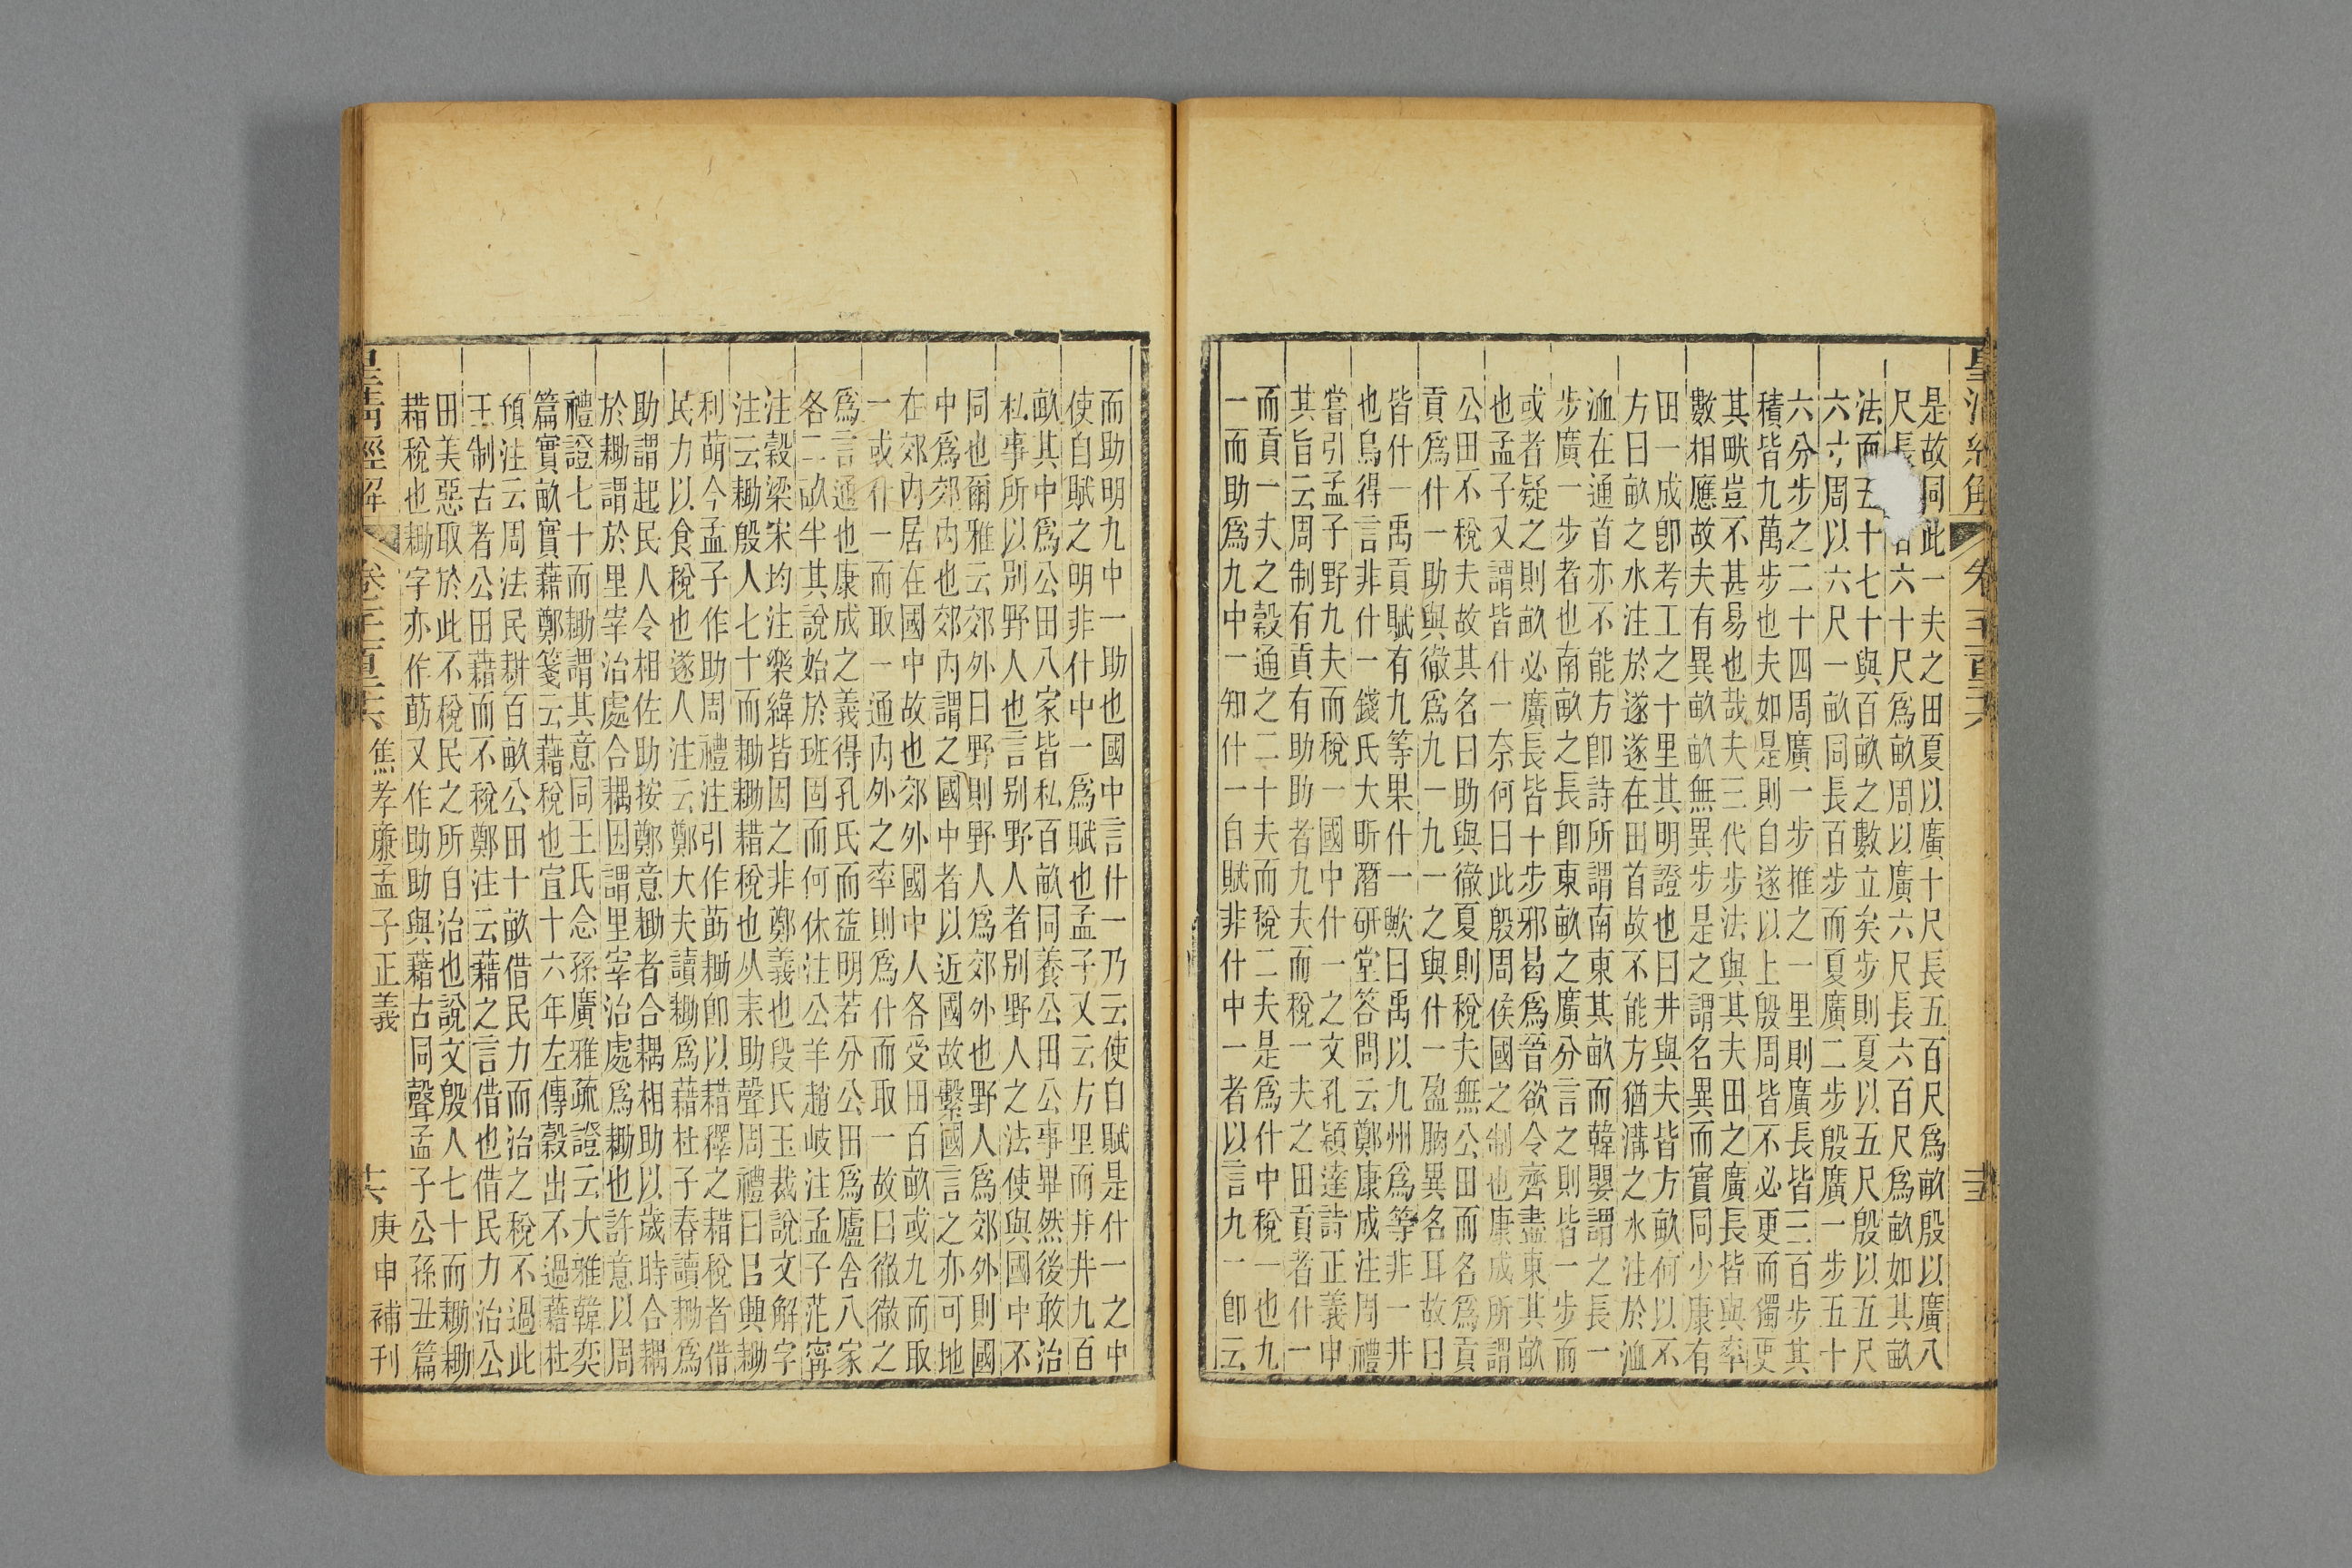 是故同此一夫之田夏以廣十尺長五百尺爲畝殷以廣八
尺長 六十尺爲畝周以廣六尺長六百尺爲畝如其畝
法而五十七十與百畝之數立矣步則夏以五尺殷以五尺
六寸周以六尺一畝同長百步而夏廣二步殷廣一步五十
六分步之二十四周廣一步推之一里則廣長皆三百步其
積皆九萬步也夫如是則自遂以上殷周皆不必更而獨更
其畎豈不甚易也哉夫三代步法與其夫田之廣長皆與率
數相應故夫有異畝畝無異步是之謂名異而實同少康有
田一成卽考工之十里其明證也曰井與夫皆方畝何以不
方曰畝之水注於遂遂在田首故不能方猶溝之水注於洫
洫在通首亦不能方卽詩所謂南東其畝而韓嬰謂之長一
步廣一步者也南畝之長卽東畝之廣分言之則皆一步而
或者疑之則畝必廣長皆十步邪曷爲晉欲令齊盡東其畝
也孟子又謂皆什一奈何曰此殷周侯國之制也康成所謂
公田不稅夫故其名曰助與徹夏則稅夫無公田而名爲貢
貢爲什一助與徹爲九一九一之與什一盈朒異名耳故曰
皆什一禹貢賦有九等果什一歟曰禹以九州爲等非一井
也烏得言非什一錢氏大昕潛研堂答問云鄭康成注周禮
嘗引孟子野九夫而稅一國中什一之文孔穎達詩正義申
其旨云周制有貢有助助者九夫而稅一夫之田貢者什一
而貢一夫之穀通之二十夫而稅二夫是爲什中稅一也九
一而助爲九中一知什一自賦非什中一者以言九一卽云
而助明九中一助也國中言什一乃云使自賦是什一之中
使自賦之明非什中一爲賦也孟子又云方里而井井九百
畝其中爲公田八家皆私百畝同養公田公事畢然後敢治
私事所以別野人也言別野人者別野人之法使與國中不
同也爾雅云郊外曰野則野人爲郊外也野人爲郊外則國
中爲郊內也郊內謂之國中者以近國故繫國言之亦可地
在郊內居在國中故也郊外國中人各受田百畝或九而取
一或什一而取一通內外之率則爲什而取一故曰徹徹之
爲言通也康成之義得孔氏而益明若分公田爲廬舍八家
各二畝半其說始於班固而何休注公羊趙岐注孟子范甯
注穀梁宋均注樂緯皆因之非鄭義也段氏玉裁說文解字
注云耡殷人七十而耡耡耤稅也从耒助聲周禮曰㠯興耡
利萌今孟子作助周禮注引作莇耡卽以耤釋之耤稅者借
民力以食稅也遂人注云鄭大夫讀耡爲藉杜子春讀耡爲
助謂起民人令相佐助按鄭意耡者合耦相助以歲時合耦
於耡謂於里宰治處合耦因謂里宰治處爲耡也許意以周
禮證七十而耡謂其意同王氏念孫廣雅疏證云大雅韓奕
篇實畝實藉鄭箋云藉稅也宣十六年左傳穀出不過藉杜
預注云周法民耕百畝公田十畝借民力而治之稅不過此
王制古者公田藉而不稅鄭注云藉之言借也借民力治公
田美惡取於此不稅民之所自治也說文殷人七十而耡耡
耤稅也耡字亦作莇又作助助與藉古同聲孟子公孫丑篇
焦孝廉孟子正義
庚申補刊